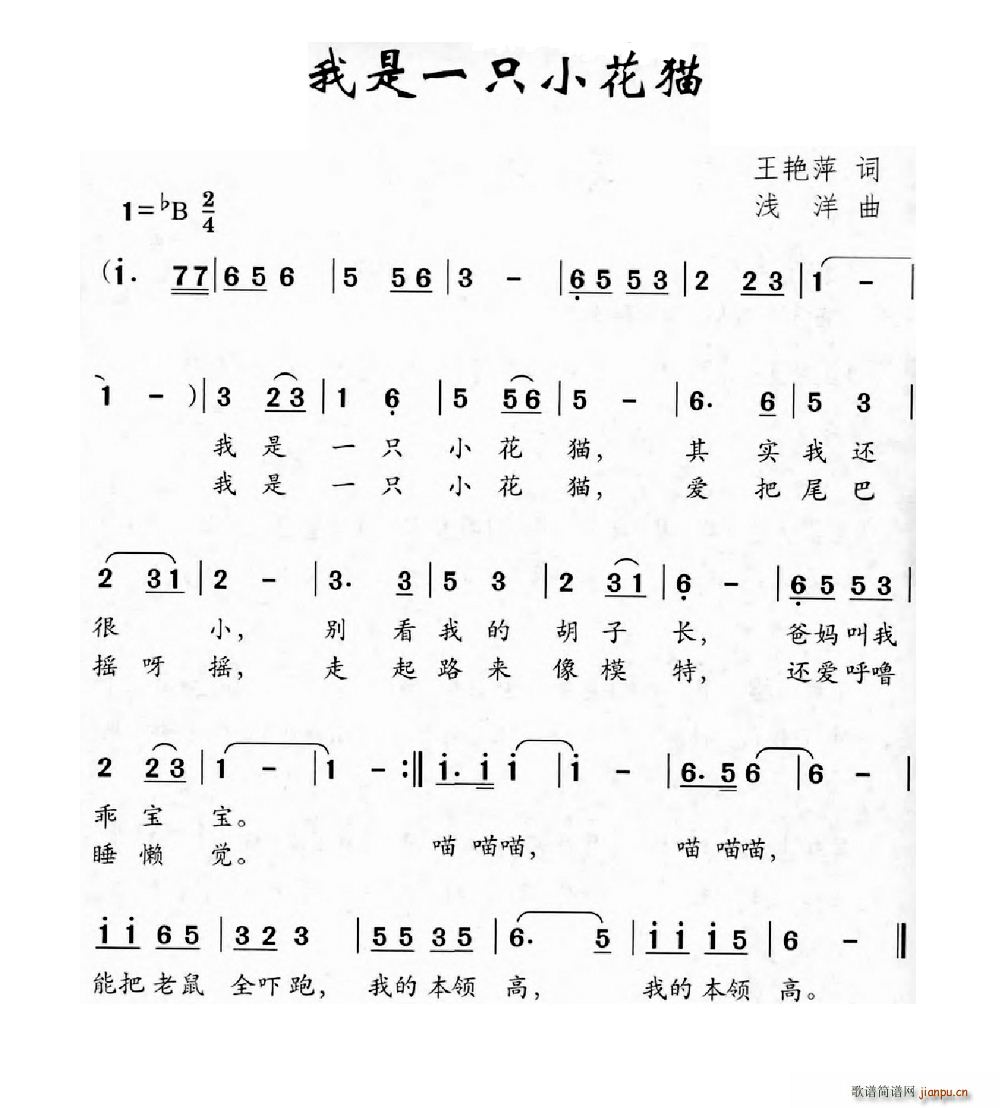 我是一只小花猫
王艳萍 词
1=♭B 2/4 浅 洋 曲
(i̇. 77|6 5 6 |5 56|3 -|6̣5 53|2 23|1 -|
1 -)|3 23|1 6̣|5 56|5 -|6. 6|5 3|
我 是 一 只 小 花 猫, 其 实 我 还
我 是 一 只 小 花 猫, 爱 把 尾 巴
2 31|2 -|3. 3|5 3|2 31|6̣ -|6̣5 53|
很 小, 别 看 我 的 胡 子 长, 爸妈叫我
摇 呀 摇, 走 起 路 来 像 模 特, 还爱呼噜
2 23|1 -|1 -:‖i̇. i̇ i̇|i̇ -|6. 5 6|6 -|
乖 宝 宝。
睡 懒 觉。 喵 喵喵, 喵 喵喵,
i̇ i̇ 6 5|3 2 3|5 5 3 5|6. 5|i̇ i̇ i̇ 5|6 -‖
能把老鼠 全吓跑, 我的本领 高, 我的本领 高。
歌谱简谱网 jianpu.cn